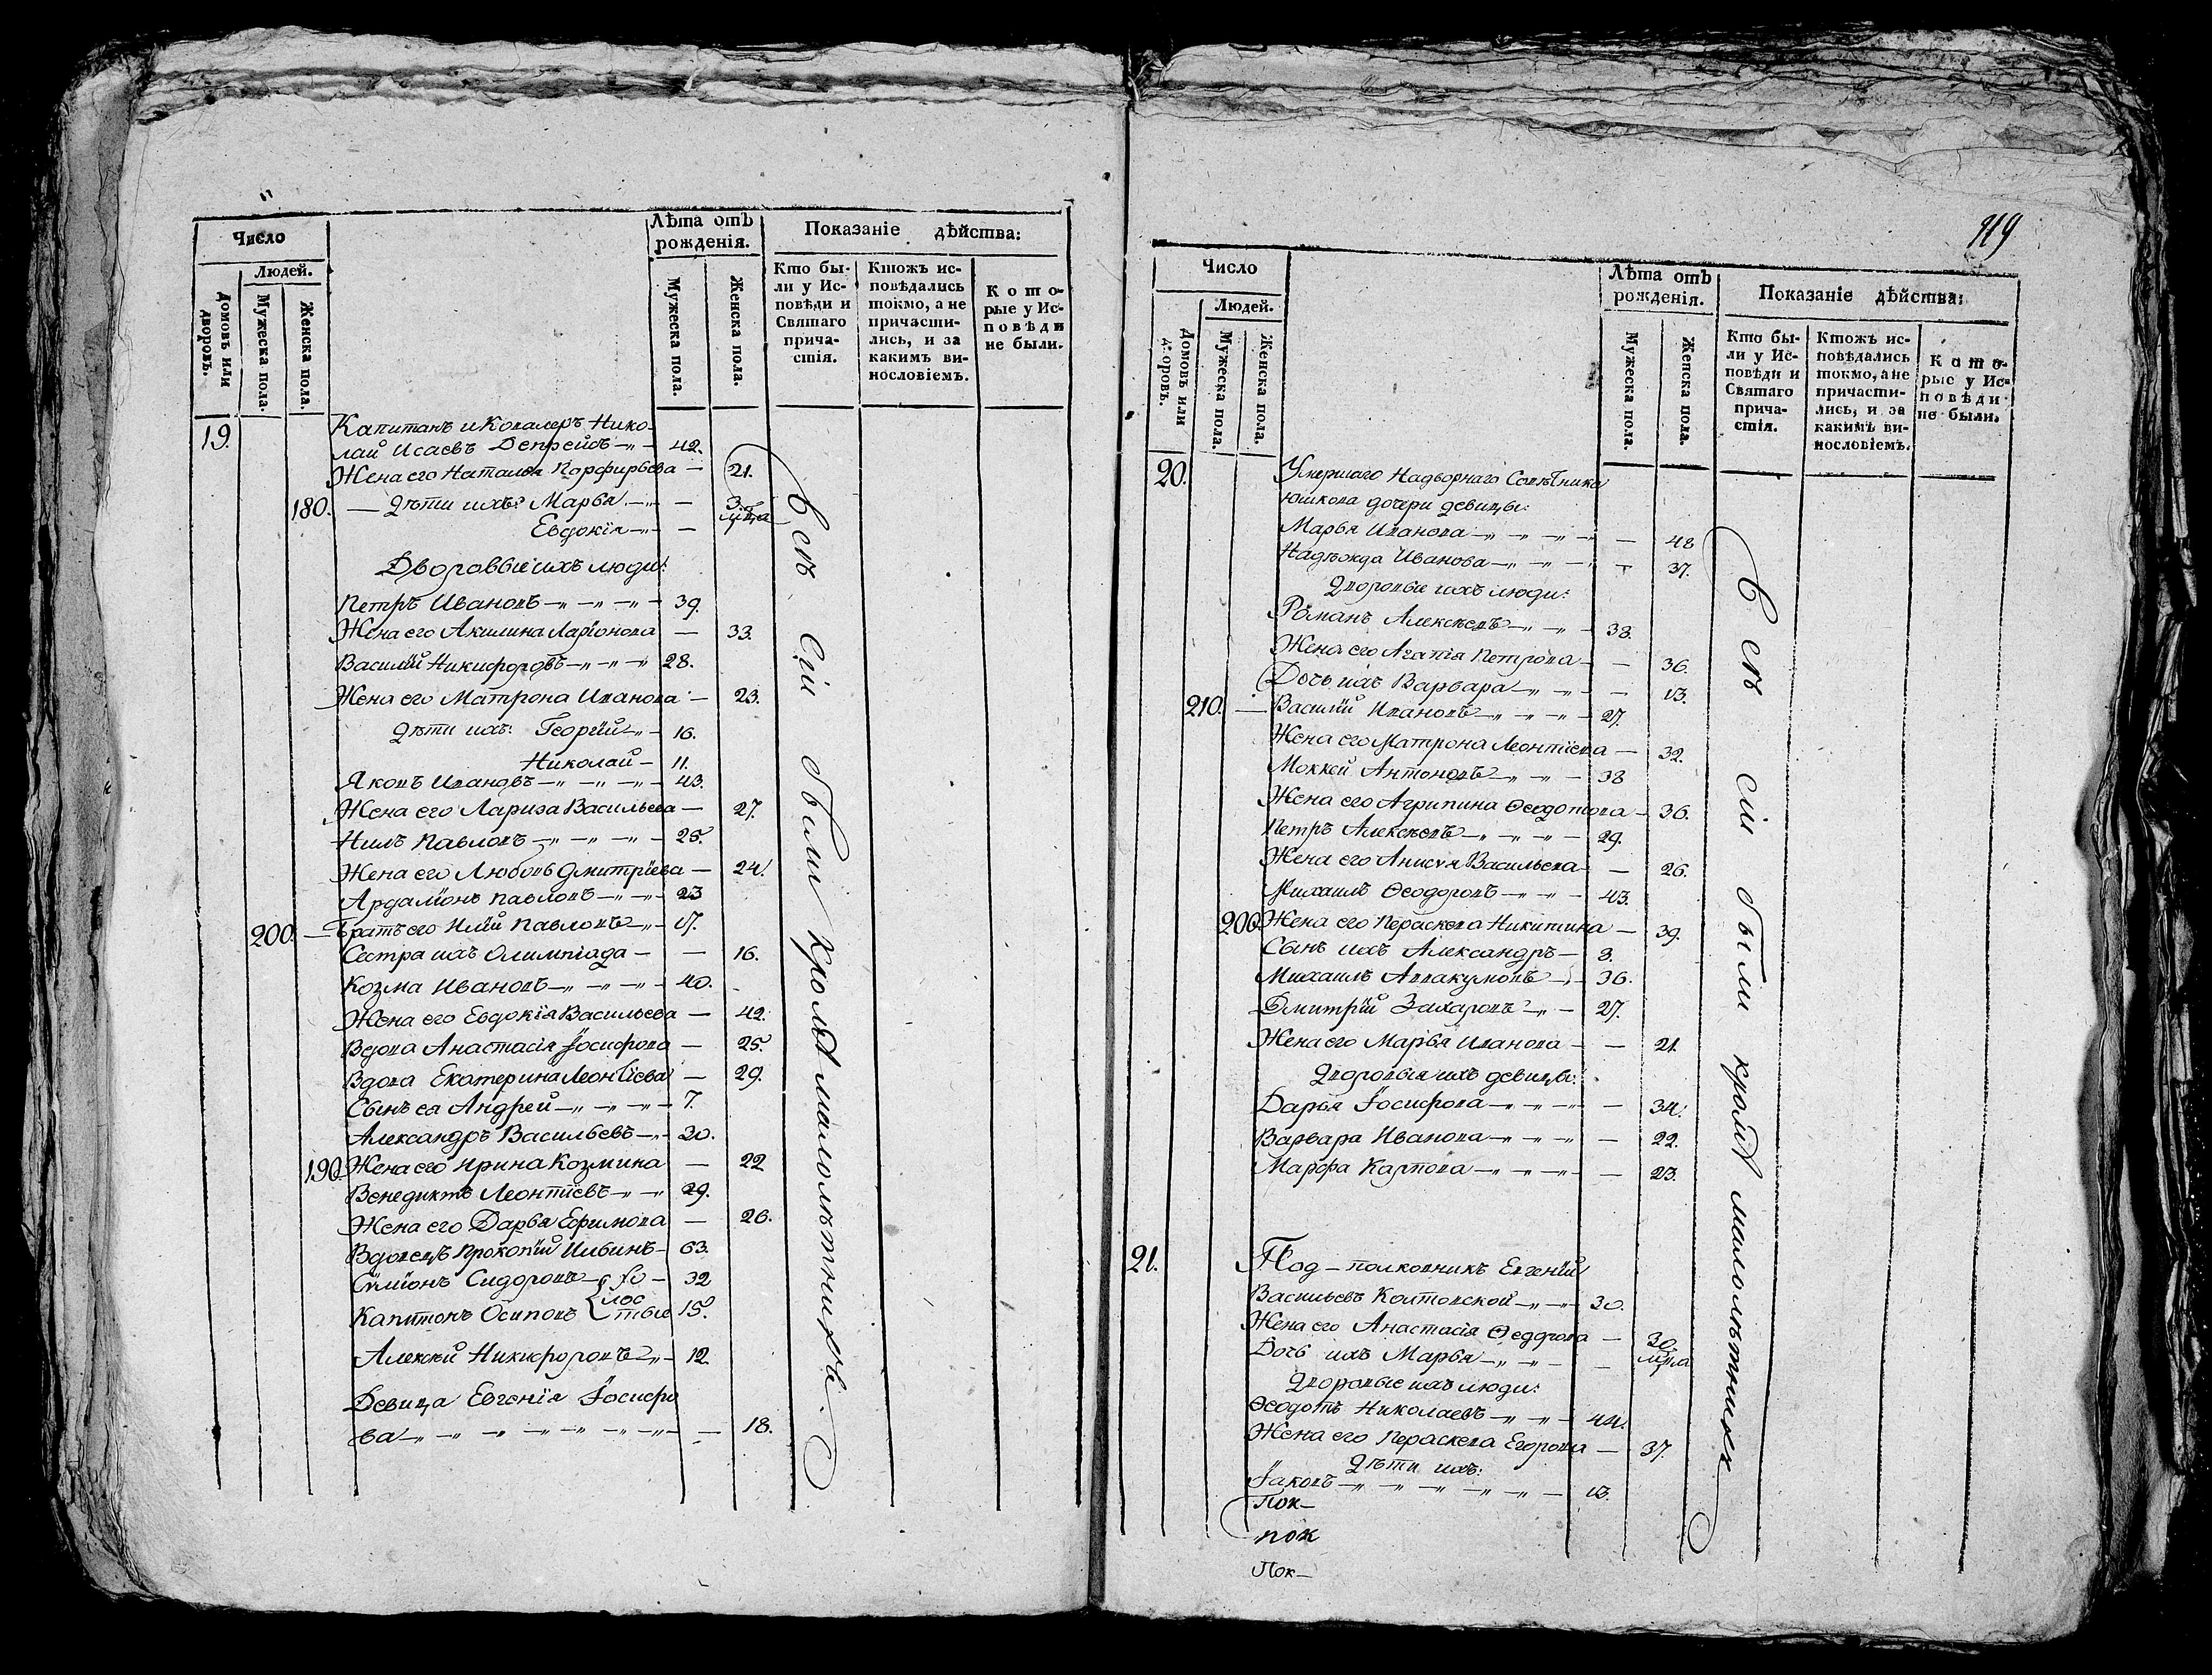 Число
Людей.
Домовъ или дворовъ.
Мужеска пола.
Женска пола.
Лѣта отъ рожденія.
Мужеска пола.
Женска пола.
Показаніе дѣйства:
Кто бы-
ли у Ис-
повѣди и
Святаго
прича-
стія.
Ктожъ ис-
повѣдались
токмо, а не
причасти-
лись, и за
какимъ ви-
нословіемъ.
Кото-
рые у Ис-
повѣди
не были.
19. Капитанъ и Кавалеръ Нико-
лай Исаевъ — 42.
Жена его Наталья Парфирьева — 21.
180. — Дѣти ихъ: Марья — — 3.
Евдокія — — м-ца
Дворовыіе ихъ люди:
Петръ Ивановъ — 39.
Жена его Акилина Ларіонова — 33.
Василій Никифоровъ — 28.
Жена его Матрона Иванова — 23.
Дѣти ихъ: Георгій — 16.
Николай — 11.
Яковъ Ивановъ — 43.
Жена его Лариза Васильева — 27.
Нилъ Павловъ — 25.
Жена его Любовь Дмитріева — 24.
Ардаліонъ Павловъ — 23
200. — Братъ его Илій Павловъ — 17.
Сестра ихъ Олимпіада — — 16.
Козма Ивановъ — 40.
Жена его Евдокія Васильева — 42.
Вдова Анастасія Іосифова — 25.
Вдова Екатерина Леонтіева — 29.
Сынъ ea Андрей — 7.
Александръ Васильевъ — 30.
190. Жена его Ирина Козмина — 22
Венедиктъ Леонтіевъ — 29.
Жена его Дарья Ефимова — 26.
Вдовецъ Прокопій Ильинъ — 63.
Симіонъ Сидоровъ — хо — 32
Капитонъ Осиповъ { лос тые 15.
Алексѣй Никифоровъ — 12.
Девица Евгенія Іосифо
ва — — 18.
Всѣ сіи были кромѣ малолѣтнихъ.
119
Число
Людей.
Домовъ или дворовъ.
Мужеска пола.
Женска пола.
Лѣта отъ рожденія.
Мужеска пола.
Женска пола.
Показаніе дѣйства:
Кто бы-
ли у Ис-
повѣди и
Святаго
прича-
стія.
Ктожъ ис-
повѣдались
токмо, а не
причасти-
лись, и за
какимъ ви-
нословіемъ.
Кото-
рые у Ис-
повѣди
не были.
20. Умершаго Надворнаго Совѣтника
Юшкова дочери девицы:
Марья Иванова — — 48
Надѣжда Иванова — — 37.
Дворовые ихъ люди:
Романъ Алексѣевъ — 38.
Жена его Агапія Петрова — — 36.
Дочь ихъ Варвара — — 13.
210. — Василій Ивановъ — 27.
Жена его Матрона Леонтіева — 32.
Моккей Антоновъ — 38
Жена его Агрипина Ѳеодотова — 36.
Петръ Алексѣевъ — 29.
Жена его Анисья Васильева — 26.
Михаилъ Ѳеодоровъ — 43.
200. Жена его Пераскева Никитина — 39.
Сынъ ихъ Александръ — 3.
Михаилъ Аввакумовъ — 36.
Дмитрій Захаровъ — 27.
Жена его Марья Иванова — — 21.
Дворовыя ихъ девицы:
Дарья Іосифова — — 34.
Варвара Иванова — — 22.
Марфа Карпова — — 23.
21. Под-полковникъ Евгеній
Васильевъ Колтовской — 30.
Жена его Анастасія Ѳеддрова — 30.
Дочь ихъ Марья — — м-ца
Дворовые ихъ люди:
Ѳеодотъ Николаевъ — 44.
Жена его Пераскева Егорова — 37.
Дѣти ихъ:
Іаковъ — 13.
Пок—
пок
Пок—
Всѣ сіи были кромѣ малолѣтнихъ